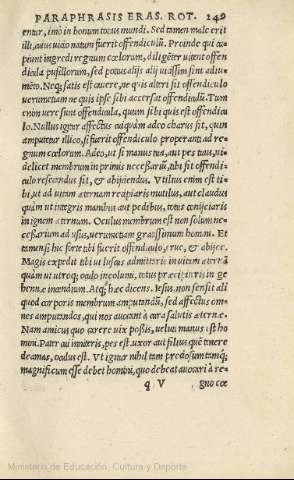 PARAPHRASIS ERAS. ROT. 249
entur, imò in bonum totius mundi. Sed tamen male erit
illi, cuius uicio natum fuerit offendiculū. Proinde qui cu=
piunt ingredi regnum cœlorum, diligēter uitent offen
dicula pusillorum, sed potius alijs alij uicissim sint adiu=
mēto. Neq; satis est cauere, ne quis alteri sit offendiculo
uerumetiam ne quis ipse sibi accersat offendiculū. Tum
enim uere sunt offendicula, quum sibi quis est offendicu
lo. Nullus igitur affectus usquàm adeo charus sit, quin
amputetur illico, si fuerit offendiculo properanti ad re=
gnum cœlorum. Adeo, ut si manus tua, aut pes tuus, ui=
delicet membrum in primis necessariū, tibi sit offendi=
culo rescindus sit, & abijciendus. Vtilius enim est ti=
bi, ut ad uitam æternam recipiaris mutilus, aut claudus
quàm ut integris manibus aut pedibus, totus conijciaris
in ignem æternum. Oculus membrum est non solum ne=
cessarium ad usus, uerumetiam gratissimum homini. Et
tamen si hic forte tibi fuerit offendiculo, erue, & abijce.
Magis expedit tibi ut luscus admittaris in uitam æternā
quàm ut utroq; oculo incolumi, totus præcipiteris in ge
hennæ incendium. Atq; hæc dicens Iesus, non sensit ali
quod corporis membrum amputandū, sed affectus om=
nes amputandos, qui nos auocant à cura salutis æternæ.
Nam amicus quo carere uix possis, uelut manus est homini.
Pater cui inniteris, pes est. uxor aut filius quē tenere
deamas, oculus est. Vt igitur nihil tam preciosum tamq;
magnificum esse debet homini, quo debeat auocari à re=
q V gno cœ
Ministerio de Educación, Cultura y Deporte